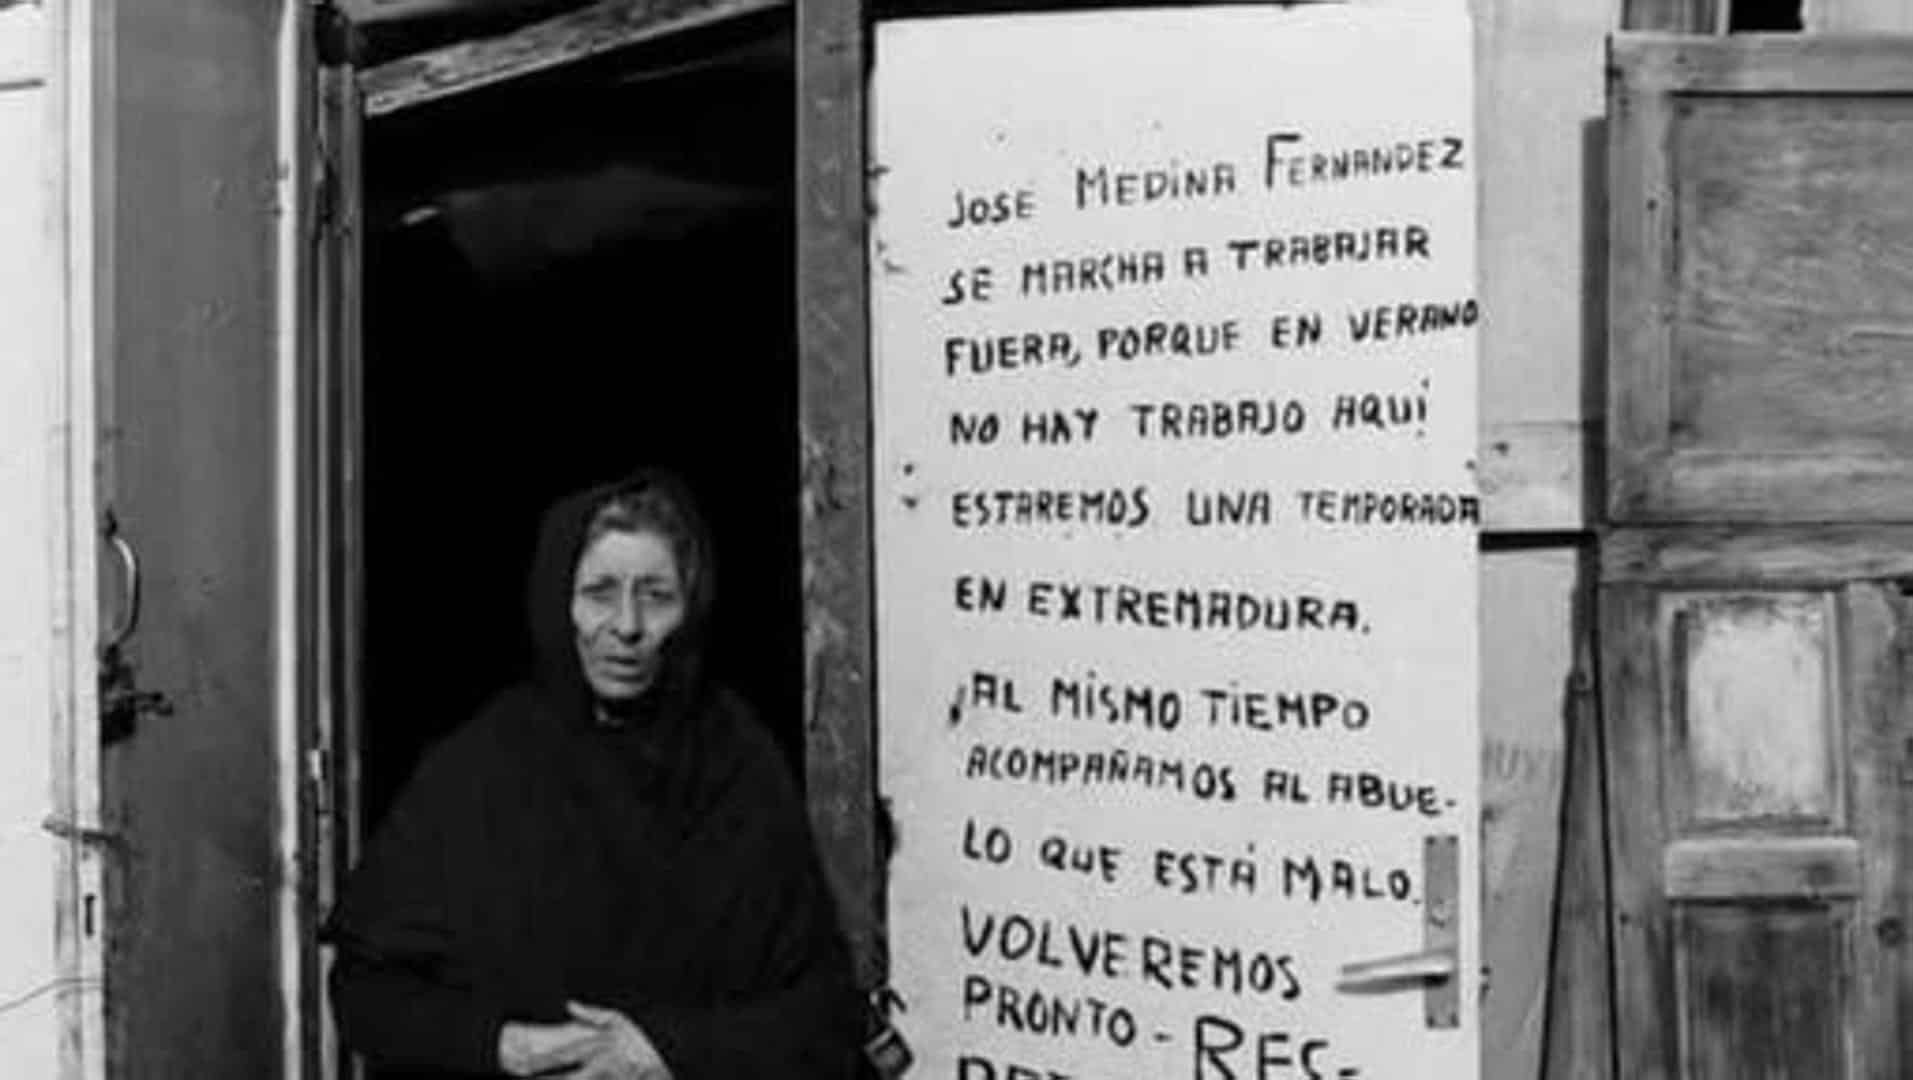 JOSE MEDiNA FERNANDEZ
SE MARCHA A TRABAJAR
FUERA, PORQUE EN VERANO
NO HAY TRABAJO AQUí
ESTAREMOS UNA TEMPORADA
EN EXTREMADURA.
AL MiSMO TiEMPO
ACOMPAÑAMOS AL ABUE-
LO QUE ESTÁ MALO.
VOLVEREMOS
PRONTO - RES-